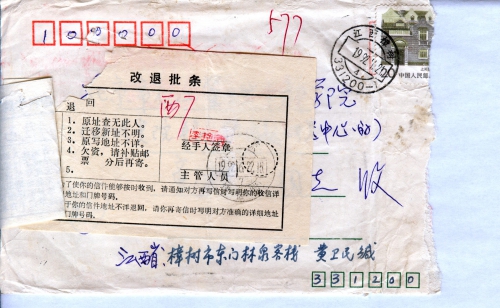 577
100200
江西樟树
331200
中国人民邮政
改退批条
退回
西7
1. 原址查无此人。
2. 迁移新址不明。
3. 原写地址不详。
4. 欠资，请补贴邮票 分后再寄。
5.
经手人签章
主管人员
了使你的信件能够按时收到，请通知对方再写信时写明你的收信详
地址和门牌号码。
于你的信件地址不详退回，请你再寄信时写明对方准确的详细地址
门牌号码。
中心的)
收
江西省、樟树市东门林泉客栈 黄卫民缄
331200